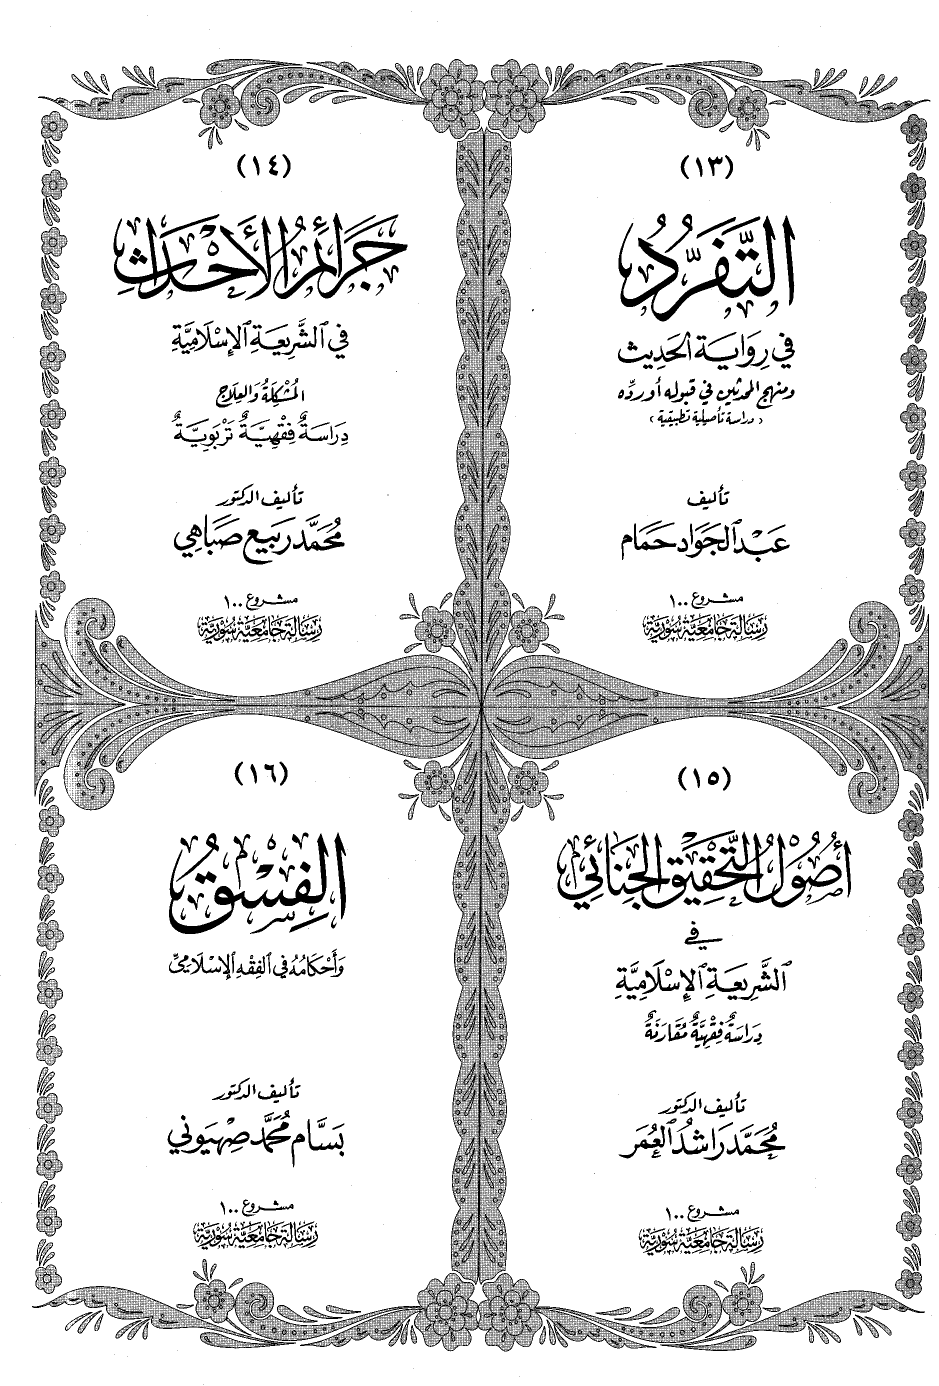 (١٣)
التَّفَرُّدُ
في رِوَايَةِ الحَدِيث
ومنهج المحدثين في قبوله أو ردِّه
( دراسة تأصيلية تطبيقية )
تأليف
عَبْد الجَوَاد حَمَام
مشروع ١٠٠
رِسَالَة جَامِعِيَّة سُورِيَّة
(١٤)
جَرَائِمُ الأَحْدَاثِ
في الشَّرِيعَةِ الإِسْلَامِيَّةِ
المُشْكِلَةُ وَالعِلَاجُ
دِرَاسَةٌ فِقْهِيَّةٌ تَرْبَوِيَّةٌ
تأليف الدكتور
مُحَمَّد رَبِيع صَبَاهِي
مشروع ١٠٠
رِسَالَة جَامِعِيَّة سُورِيَّة
(١٥)
أُصُوْلُ التَّحْقِيْقِ الجِنَائِي
في
الشَّرِيعَةِ الإِسْلَامِيَّةِ
دِرَاسَةٌ فِقْهِيَّةٌ مُقَارَنَةٌ
تأليف الدكتور
مُحَمَّد رَاشِدُ العُمَر
مشروع ١٠٠
رِسَالَة جَامِعِيَّة سُورِيَّة
(١٦)
الفِسْقُ
وَأَحْكَامُهُ في الفِقْهِ الإِسْلَامِيِّ
تأليف الدكتور
بَسَّام مُحَمَّد صَهْيُونِي
مشروع ١٠٠
رِسَالَة جَامِعِيَّة سُورِيَّة